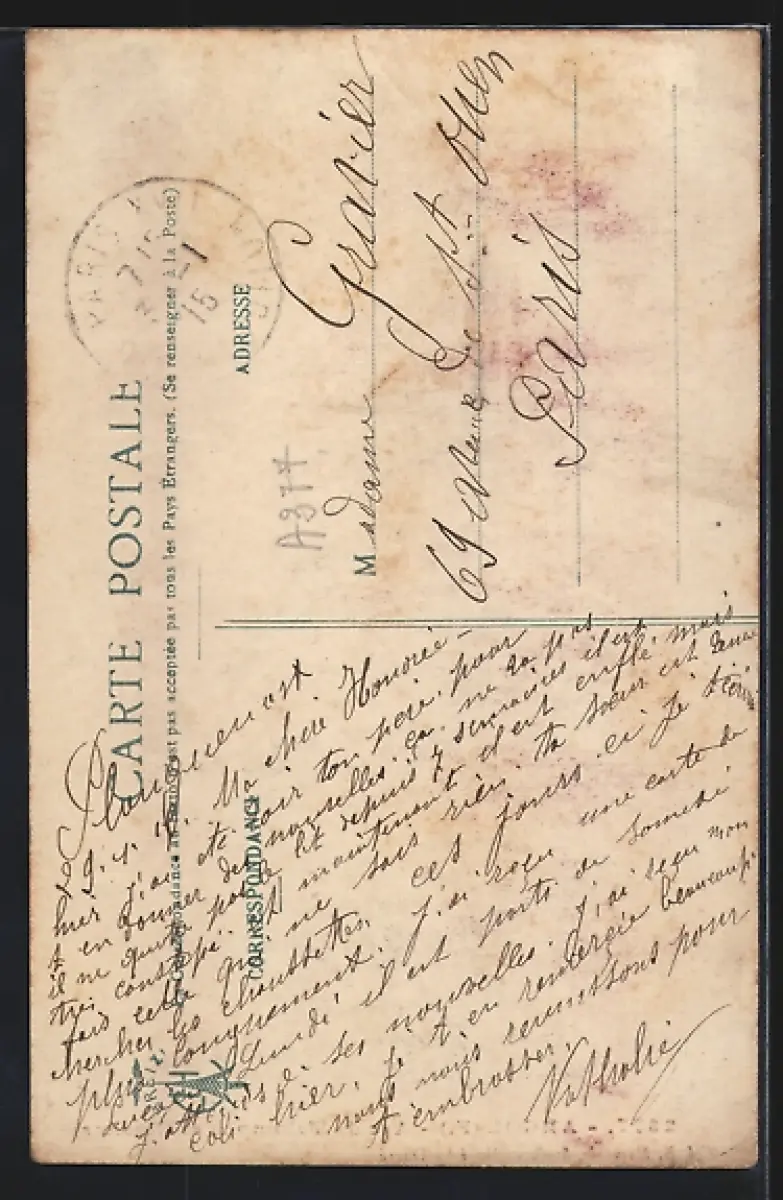 CARTE POSTALE
La Correspondance au recto n'est pas acceptée par tous les Pays Étrangers. (Se renseigner à la Poste)
CORRESPONDANCE
ADRESSE
PARIS
7 15
15
A377
Madame Gravier
69 de St Ouen
Paris
29.
Ma chère Honorée
hier j'ai été voir ton père pour
t'en donner des nouvelles. ça ne va pas
il ne quitte pas le lit depuis 7 semaines il est
très constipé. et maintenant il est enflé mais
fais celle qui ne sais rien. ta sœur est venue
chercher les chaussettes ces jours ci je t'écrirai
plus longuement. J'ai reçu une carte de
Lucien il est parti de samedi
J'attends de ses nouvelles. J'ai reçu mon
coli hier. je t'en remercie beaucoup
nous nous réunissons pour
t'embrasser.
Nathalie